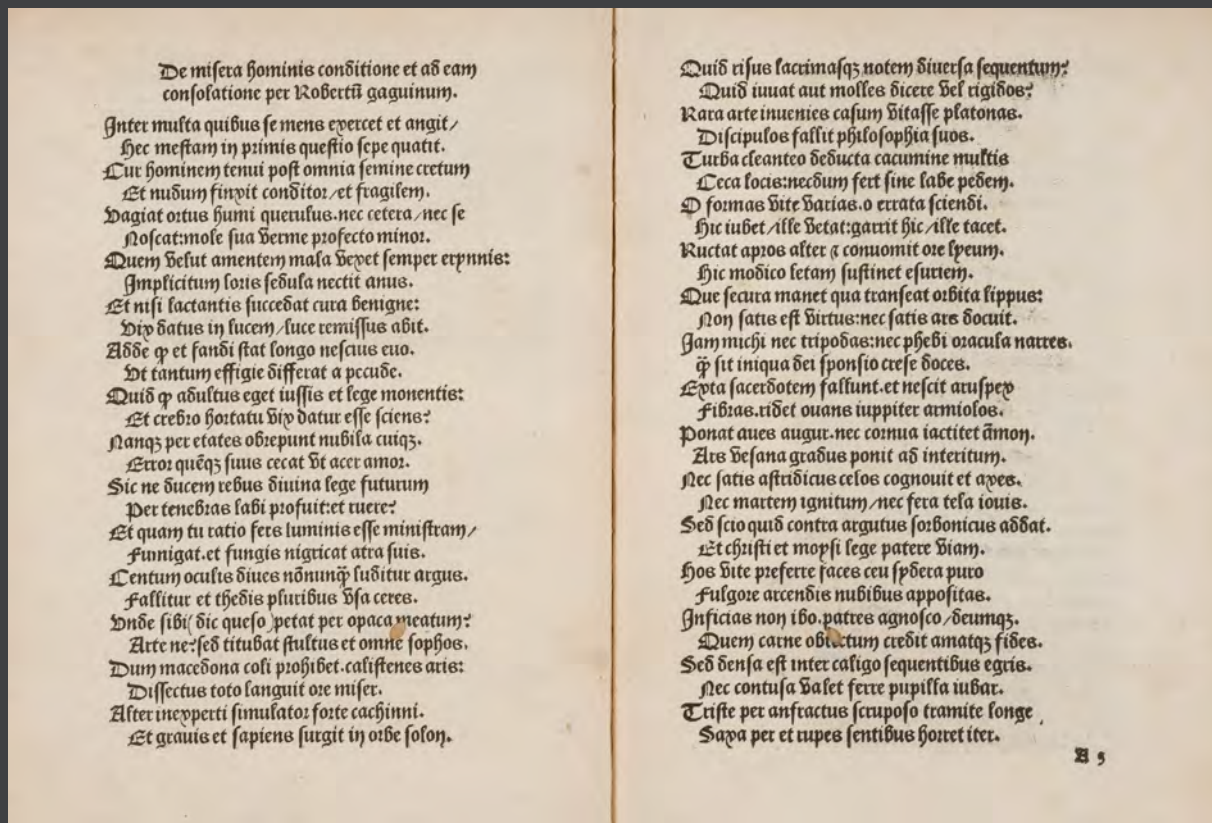 De misera hominis conditione et ad eam
consolatione per Robertū gaguinum.
Inter multa quibus se mens exercet et angit/
Hec mestam in primis questio sepe quatit.
Cur hominem tenui post omnia semine cretum
Et nudum finxit conditor/et fragilem.
Vagiat ortus humi querulus.nec cetera/nec se
Noscat:mole sua verme profecto minor.
Quem velut amentem mala vexet semper erynnis:
Implicitum loris sedula nectit anus.
Et nisi lactantis succedat cura benigne:
Vix datus in lucem/luce remissus abit.
Adde ꝙ et fandi stat longo nescius euo.
Ut tantum effigie differat a pecude.
Quid ꝙ adultus eget iussis et lege monentis:
Et crebro hortatu vix datur esse sciens?
Nanqꝫ per etates obrepunt nubila cuiqꝫ.
Error quēqꝫ suus cecat vt acer amor.
Sic ne ducem rebus diuina lege futurum
Per tenebras labi profuit:et ruere?
Et quam tu ratio fers luminis esse ministram/
Fumigat.et fungis nigricat atra suis.
Centum oculis diues nōnunq̄ luditur argus.
Fallitur et thedis pluribus vsa ceres.
Unde sibi( dic queso )petat per opaca meatum?
Arte ne?sed titubat stultus et omne sophos.
Dum macedona coli prohibet.calistenes aris:
Dissectus toto languit ore miser.
Alter inexperti simulator forte cachinni.
Et grauis et sapiens surgit in orbe solon.
Quid risus lacrimasqꝫ notem diuersa sequentum?
Quid iuuat aut molles dicere vel rigidos?
Rara arte inuenies casum vitasse platonas.
Discipulos fallit philosophia suos.
Turba cleanteo deducta cacumine multis
Ceca locis:necdum fert sine labe pedem.
O formas vite varias.o errata sciendi.
Hic iubet/ille vetat:garrit hic/ille tacet.
Ructat apros alter ⁊ conuomit ore lyeum.
Hic modico letam sustinet esuriem.
Que secura manet qua transeat orbita lippus:
Non satis est virtus:nec satis ars docuit.
Iam michi nec tripodas:nec phebi oracula narres.
q̄ sit iniqua dei sponsio crese doces.
Exta sacerdotem fallunt.et nescit aruspex
Fibras.ridet ouans iuppiter armiolos.
Ponat aues augur.nec cornua iactitet āmon.
Ars vesana gradus ponit ad interitum.
Nec satis astridicus celos cognouit et axes.
Nec martem ignitum/nec fera tela iouis.
Sed scio quid contra argutus sorbonicus addat.
Et christi et mopsi lege patere viam.
Hos vite preferre faces ceu sydera puro
Fulgore arcendis nubibus appositas.
Inficias non ibo.patres agnosco/deumqꝫ.
Quem carne credit amatqꝫ fides.
Sed densa est inter caligo sequentibus egris.
Nec contusa valet ferre pupilla iubar.
Triste per anfractus scruposo tramite longe
Saxa per et rupes sentibus horret iter.
A 5